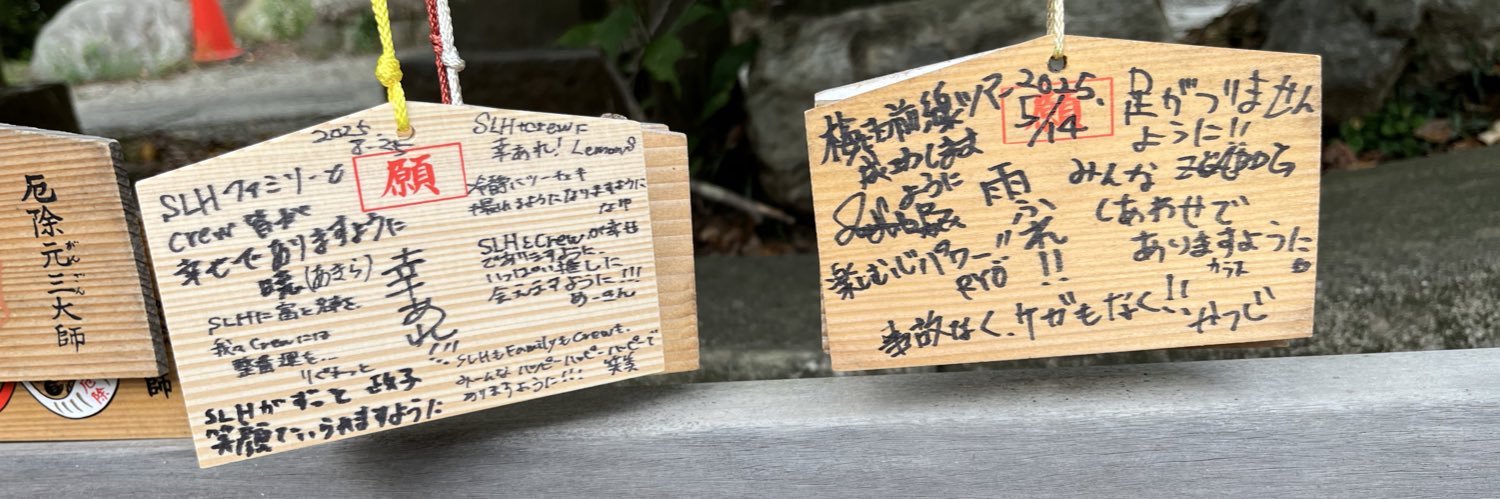 厄除元三大師
がんざん
厄除
師
2025
8.25
願
SLHファミリーが
crew皆が
幸せでありますように
暁(あきら)
SLHに富と
我々crewには
整番運も…
りぐまっと
SLHがずっと
笑顔でいられますように
幸あれ!!!
SLH+crewに
幸あれ!Lemon8
冷静にツーチェキ
撮れるようになりますように
SLH&Crewが幸せ
でありますように
いっぱい推しに
会えますように!!!
めーさん
SLHもFamilyもCrewも、
みーんなハッピーハッピーハッピーで
ありますように!!!
願
2025.
5/14
前線ツアー
成功します
ように
楽しむパワー!!
pyō
雨ふれ!!
足がつりません
ように!!
みんな
しあわせで
ありますように
カラス
事故なく、ケガもなく!!
やつじ